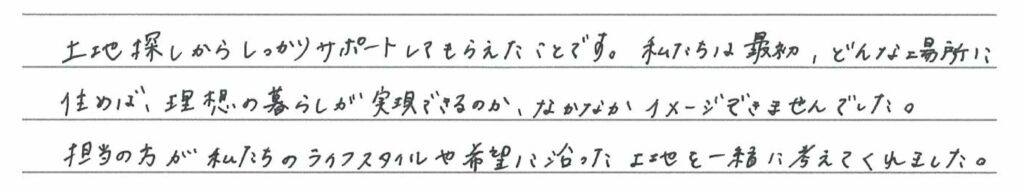 土地探しからしっかりサポートしてもらえたことです。私たちは最初、どんな場所に
住めば、理想の暮らしが実現できるのか、なかなかイメージできませんでした。
担当の方が私たちのライフスタイルや希望に沿った土地を一緒に考えてくれました。